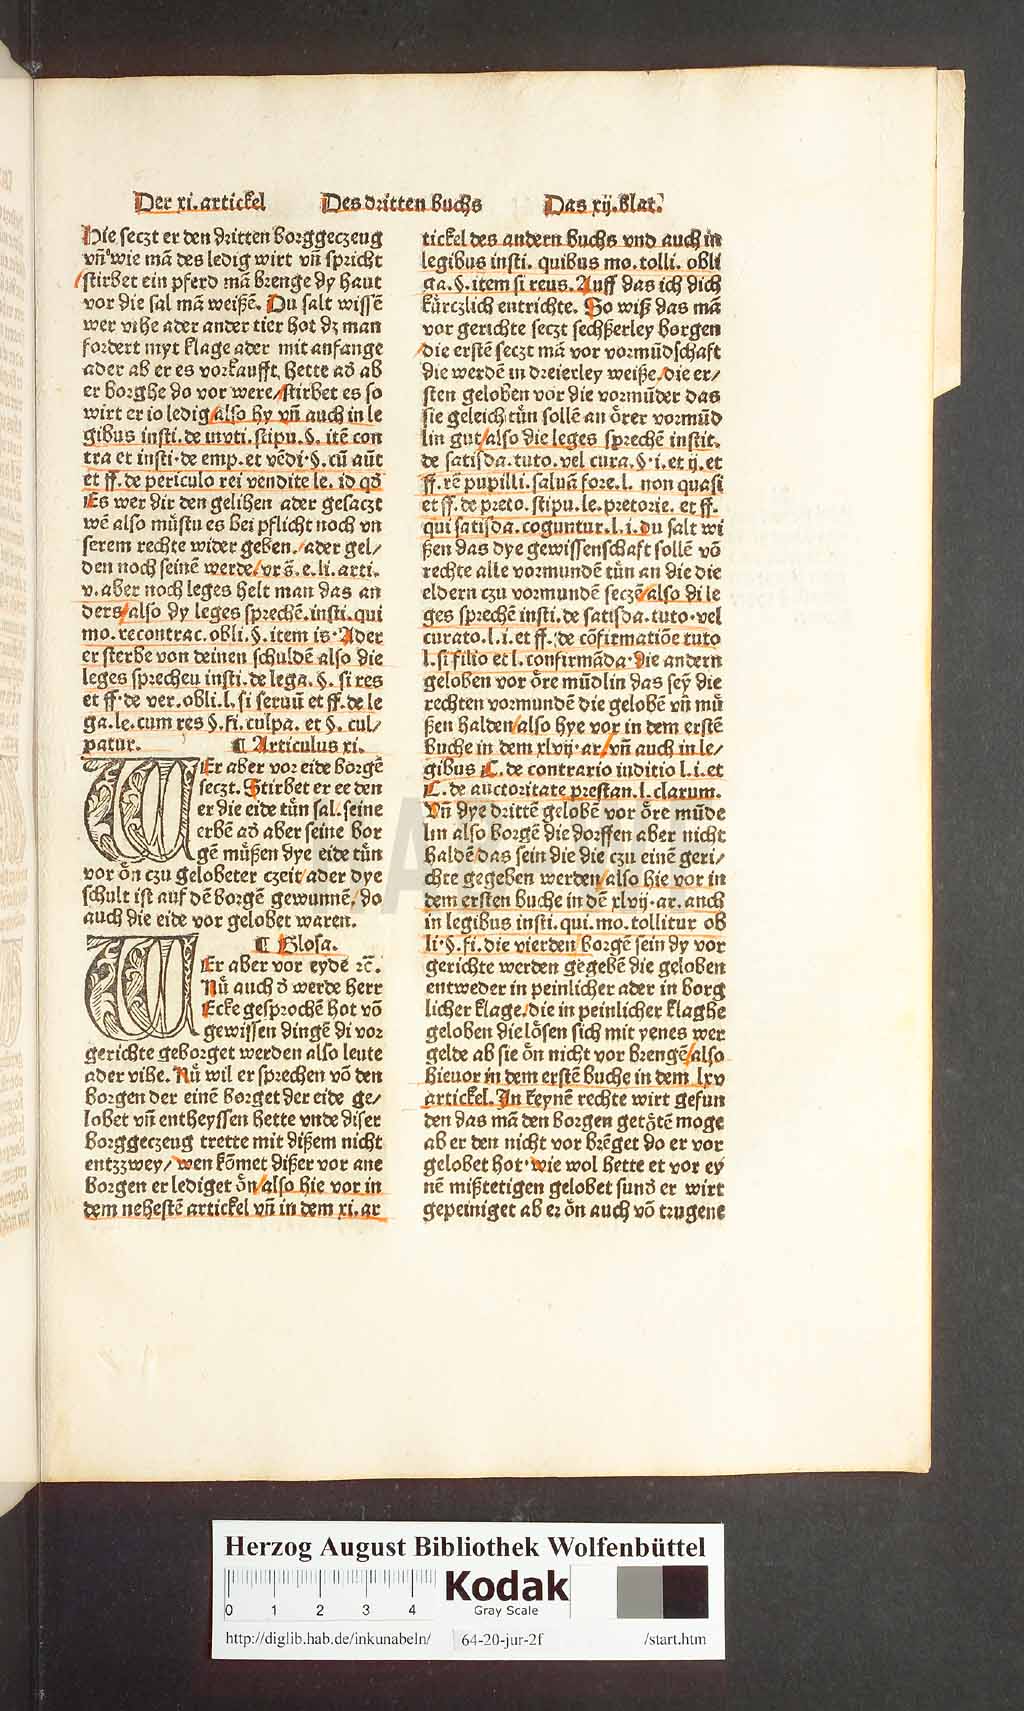 Der xi. artickel Des dritten buchs Das xij. blat.
Hie seczt er den dritten borggeczeug
vn̄ wie mā des ledig wirt vn̄ spricht
/stirbet ein pferd mā brenge dy haut
vor die sal mā weißē. Du salt wissē
wer vihe ader ander tier hot dz man
fordert myt klage ader mit anfange
ader ab er es vorkaufft hette ad̄ ab
er borghe do vor were/stirbet es so
wirt er io ledig/also hy vn̄ auch in le
gibus insti. de invti. stipu. §. itē con
tra et insti· de emp. et vēdi· §. cū aūt
et ff. de periculo rei vendite le. id qd̄
Es wer dir den gelihen ader gesaczt
wē also můstu es bei pflicht noch vn
serem rechte wider geben./ader gel/
den noch seinē werde/vt s̄. e. li. arti.
v. aber noch leges helt man das an
ders/also dy leges sprechē. insti. qui
mo. recontrac. obli. §. item is· Ader
er sterbe von deinen schuldē also die
leges sprecheu insti. de lega. §. si res
et ff· de ver. obli. l. si seruū et ff. de le
ga. le. cum res §. fi. culpa. et §. cul/
patur. ¶ Articulus xi.
WEr aber vor eide borgē
seczt. Stirbet er ee den
er die eide tůn sal. seine
erbē ad̄ aber seine bor
gē můßen dye eide tůn
vor ōn czu gelobeter czeit/ader dye
schult ist auf dē borgē gewunnē/do
auch die eide vor gelobet waren.
¶ Glosa.
WEr aber vor eydē ꝛc̄.
Nů auch d̄ werde herr
Ecke gesprochē hot vō
gewissen dingē di vor
gerichte geborget werden also leute
ader vihe. Nů wil er sprechen vō den
borgen der einē borget der eide ge/
lobet vn̄ entheyssen hette vnde diser
borggeczeug trette mit dißem nicht
entzzwey/wen kōmet dißer vor ane
borgen er lediget ōn/also hie vor in
dem nehestē artickel vn̄ in dem xi. ar
tickel des andern buchs vnd auch in
legibus insti. quibus mo. tolli. obli
ga. §. item si reus. Auff das ich dich
kůrczlich entrichte. So wiß das mā
vor gerichte seczt sechßerley borgen
/die erstē seczt mā vor vormūdschaft
die werdē in dreierley weiße/die er/
sten geloben vor die vormūder das
sie geleich tůn sollē an ōrer vormūd
lin gut/also die leges sprechē instit.
de satisda. tuto. vel cura. §· i. et ij. et
ff. rē pupilli. saluā fore. l. non quasi
et ff. de preto. stipu. le. pretorie. et ff.
qui satisda. coguntur. l. i. du salt wi
ßen das dye gewissenschaft sollē vō
rechte alle vormundē tůn an die die
eldern czu vormundē seczē/also di le
ges sprechē insti. de satisda. tuto· vel
curato. l. i. et ff. de cōfirmatiōe tuto
l. si filio et l. confirmāda· die andern
geloben vor ōre mūdlin das sey die
rechten vormundē die gelobē vn̄ mů
ßen halden/also hye vor in dem erstē
buche in dem xlvij· ar/vn̄ auch in le/
gibus C. de contrario iuditio l. i. et
C. de auctoritate prestan. l. clarum.
Vn̄ dye drittē gelobē vor ōre mūde
lin also borgē die dorffen aber nicht
haldē/das sein die die czu einē geri/
chte gegeben werden/also hie vor in
dem ersten buche in dē xlvij· ar. auch
in legibus insti. qui. mo. tollitur ob
li· §. fi. die vierden borgē sein dy vor
gerichte werden gegebē die geloben
entweder in peinlicher ader in borg
licher klage/die in peinlicher klaghe
geloben die lōsen sich mit yenes wer
gelde ab sie ōn nicht vor brengē/also
hieuor in dem erstē buche in dem lxv
artickel. In keynē rechte wirt gefun
den das mā den borgen getōtē moge
ab er den nicht vor brēget do er vor
gelobet hot· wie wol hette et vor ey
nē mißtetigen gelobet sund̄ er wirt
gepeiniget ab er ōn auch vō trugene
HAB
Herzog August Bibliothek Wolfenbüttel
0 1 2 3 4
Kodak
Gray Scale
http://diglib.hab.de/inkunabeln/ 64-20-jur-2f /start.htm